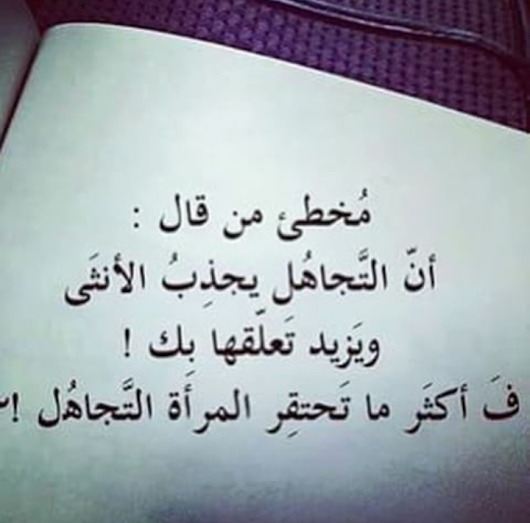 مُخطئ من قال :
أنّ التَّجاهُل يجذِبُ الأنثَى
ويَزيد تَعلّقها بِك !
فَ أكثَر ما تَحتقِر المرأة التَّجاهُل !